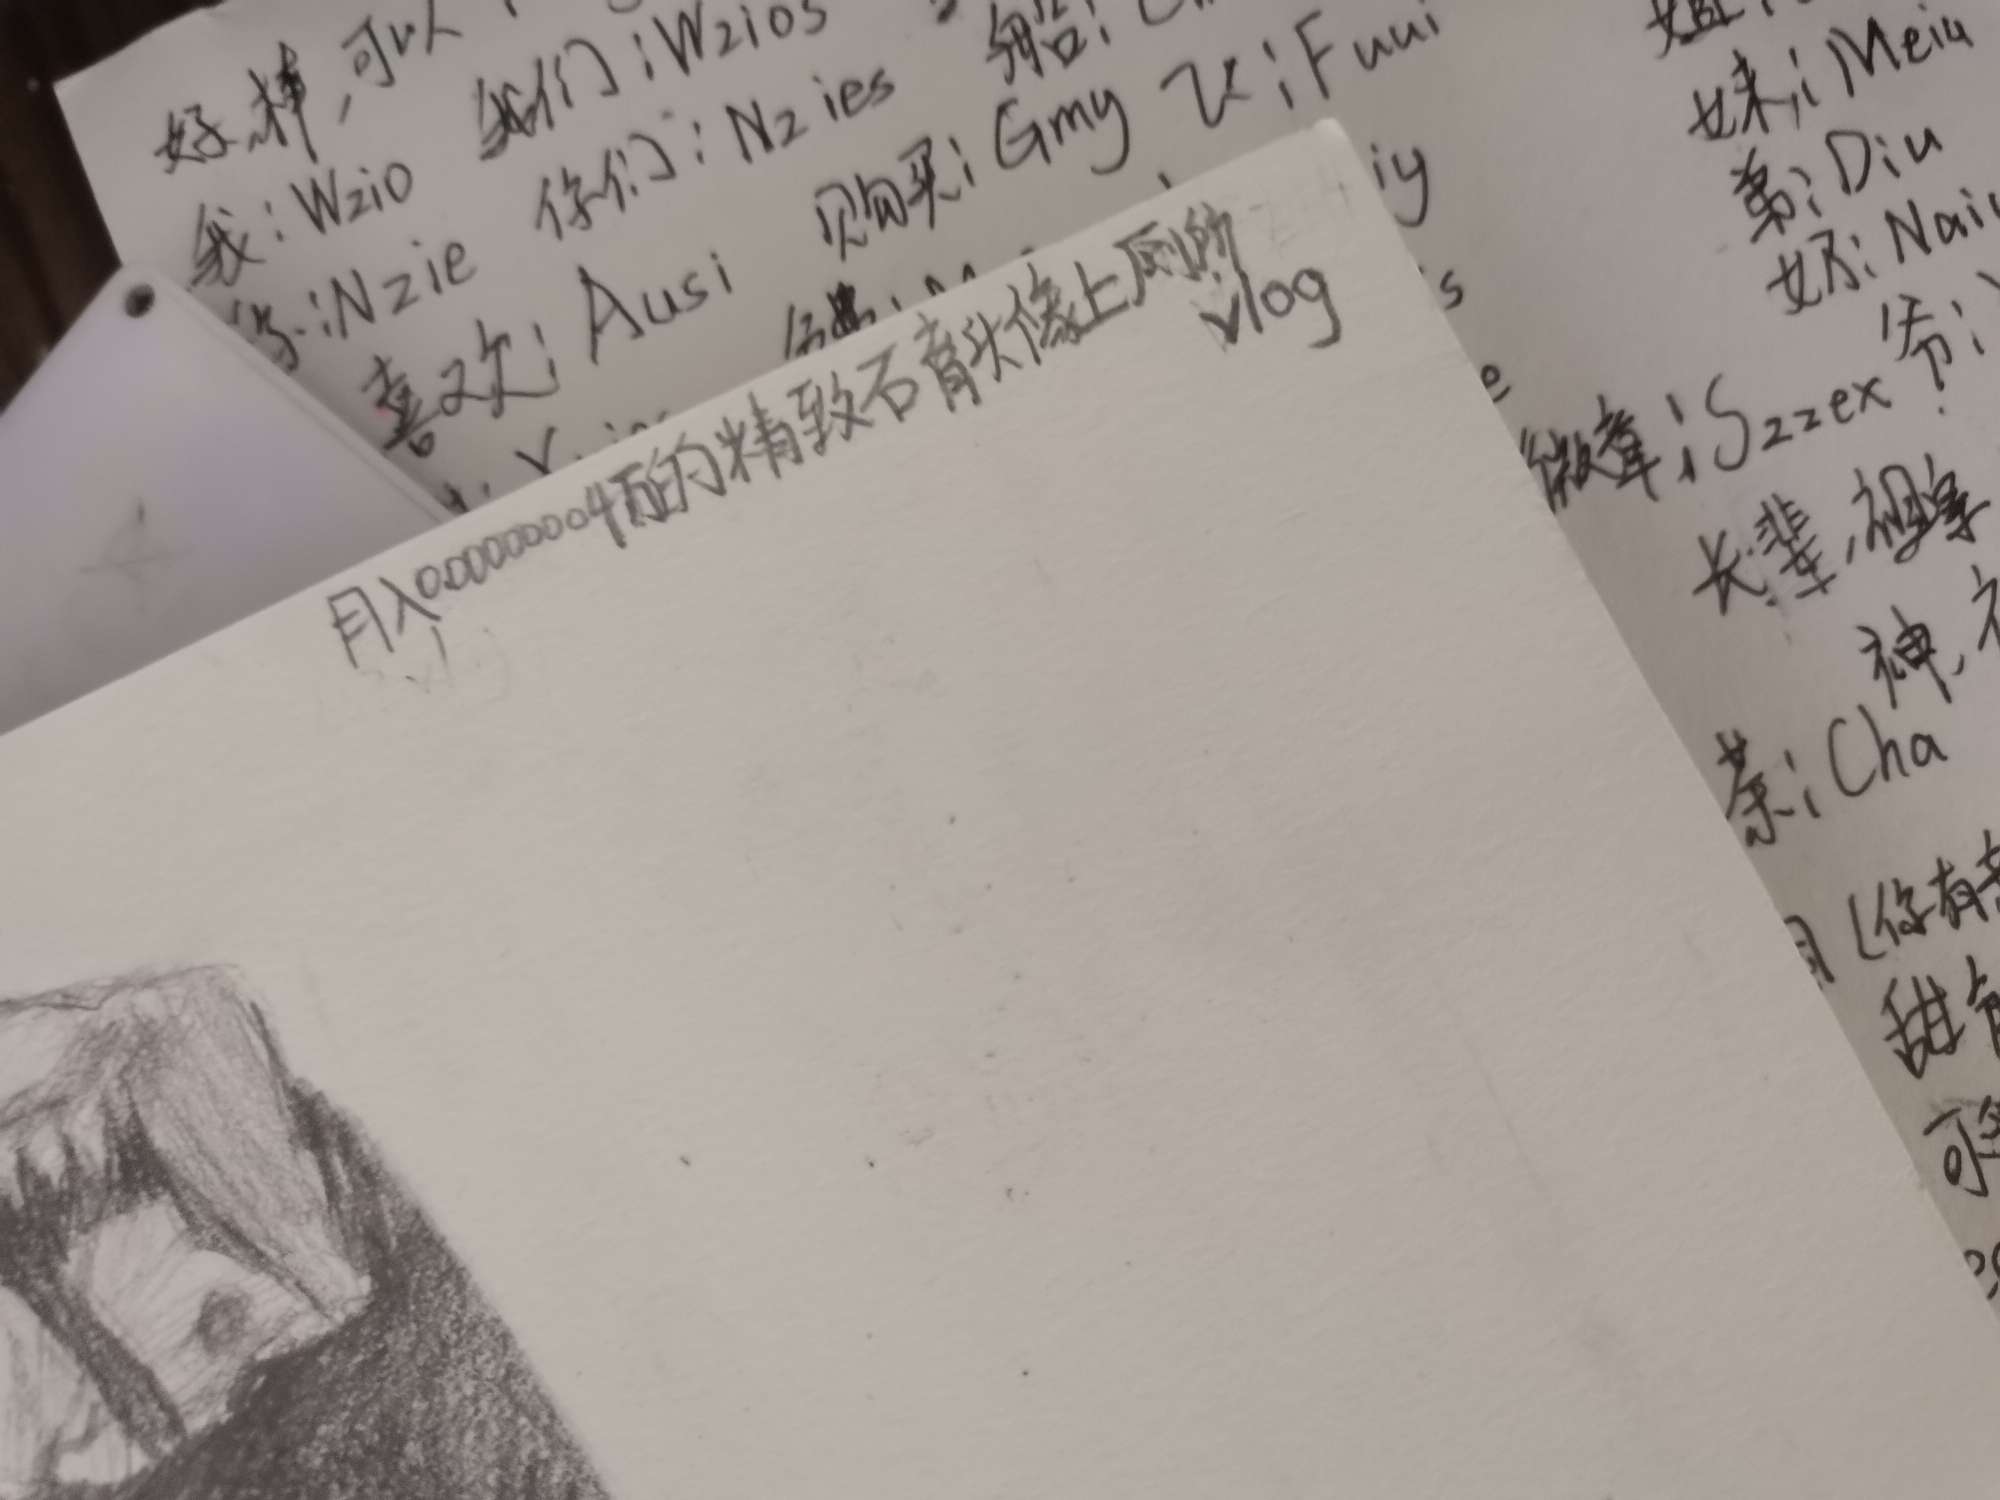 好,棒,可以
我们:Wzios
给:
我:Wzio
你们:Nzies
购买:Gmy
飞:Fuui
你:Nzie
喜欢:Ausi
iy
s
e
妹:Meiu
弟:Diu
奶:Naiu
爷:
徽章:Szzex
长辈,祖辈
神,
茶:Cha
你有
甜
可
月入0.00000004的精致石膏头像上厕所
vlog